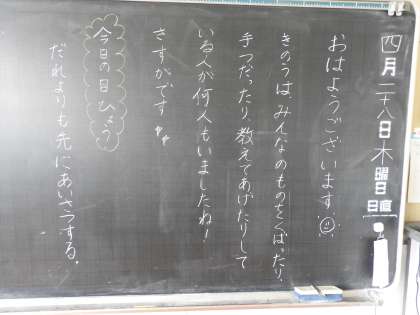 四月二十八日木曜日
日直
おはようございます
きのうは みんなのものをくばったり、
手つだったり、教えてあげたりして
いる人が何人もいましたね！
さすがです
今日の目ひょう
だれよりも先にあいさつする。